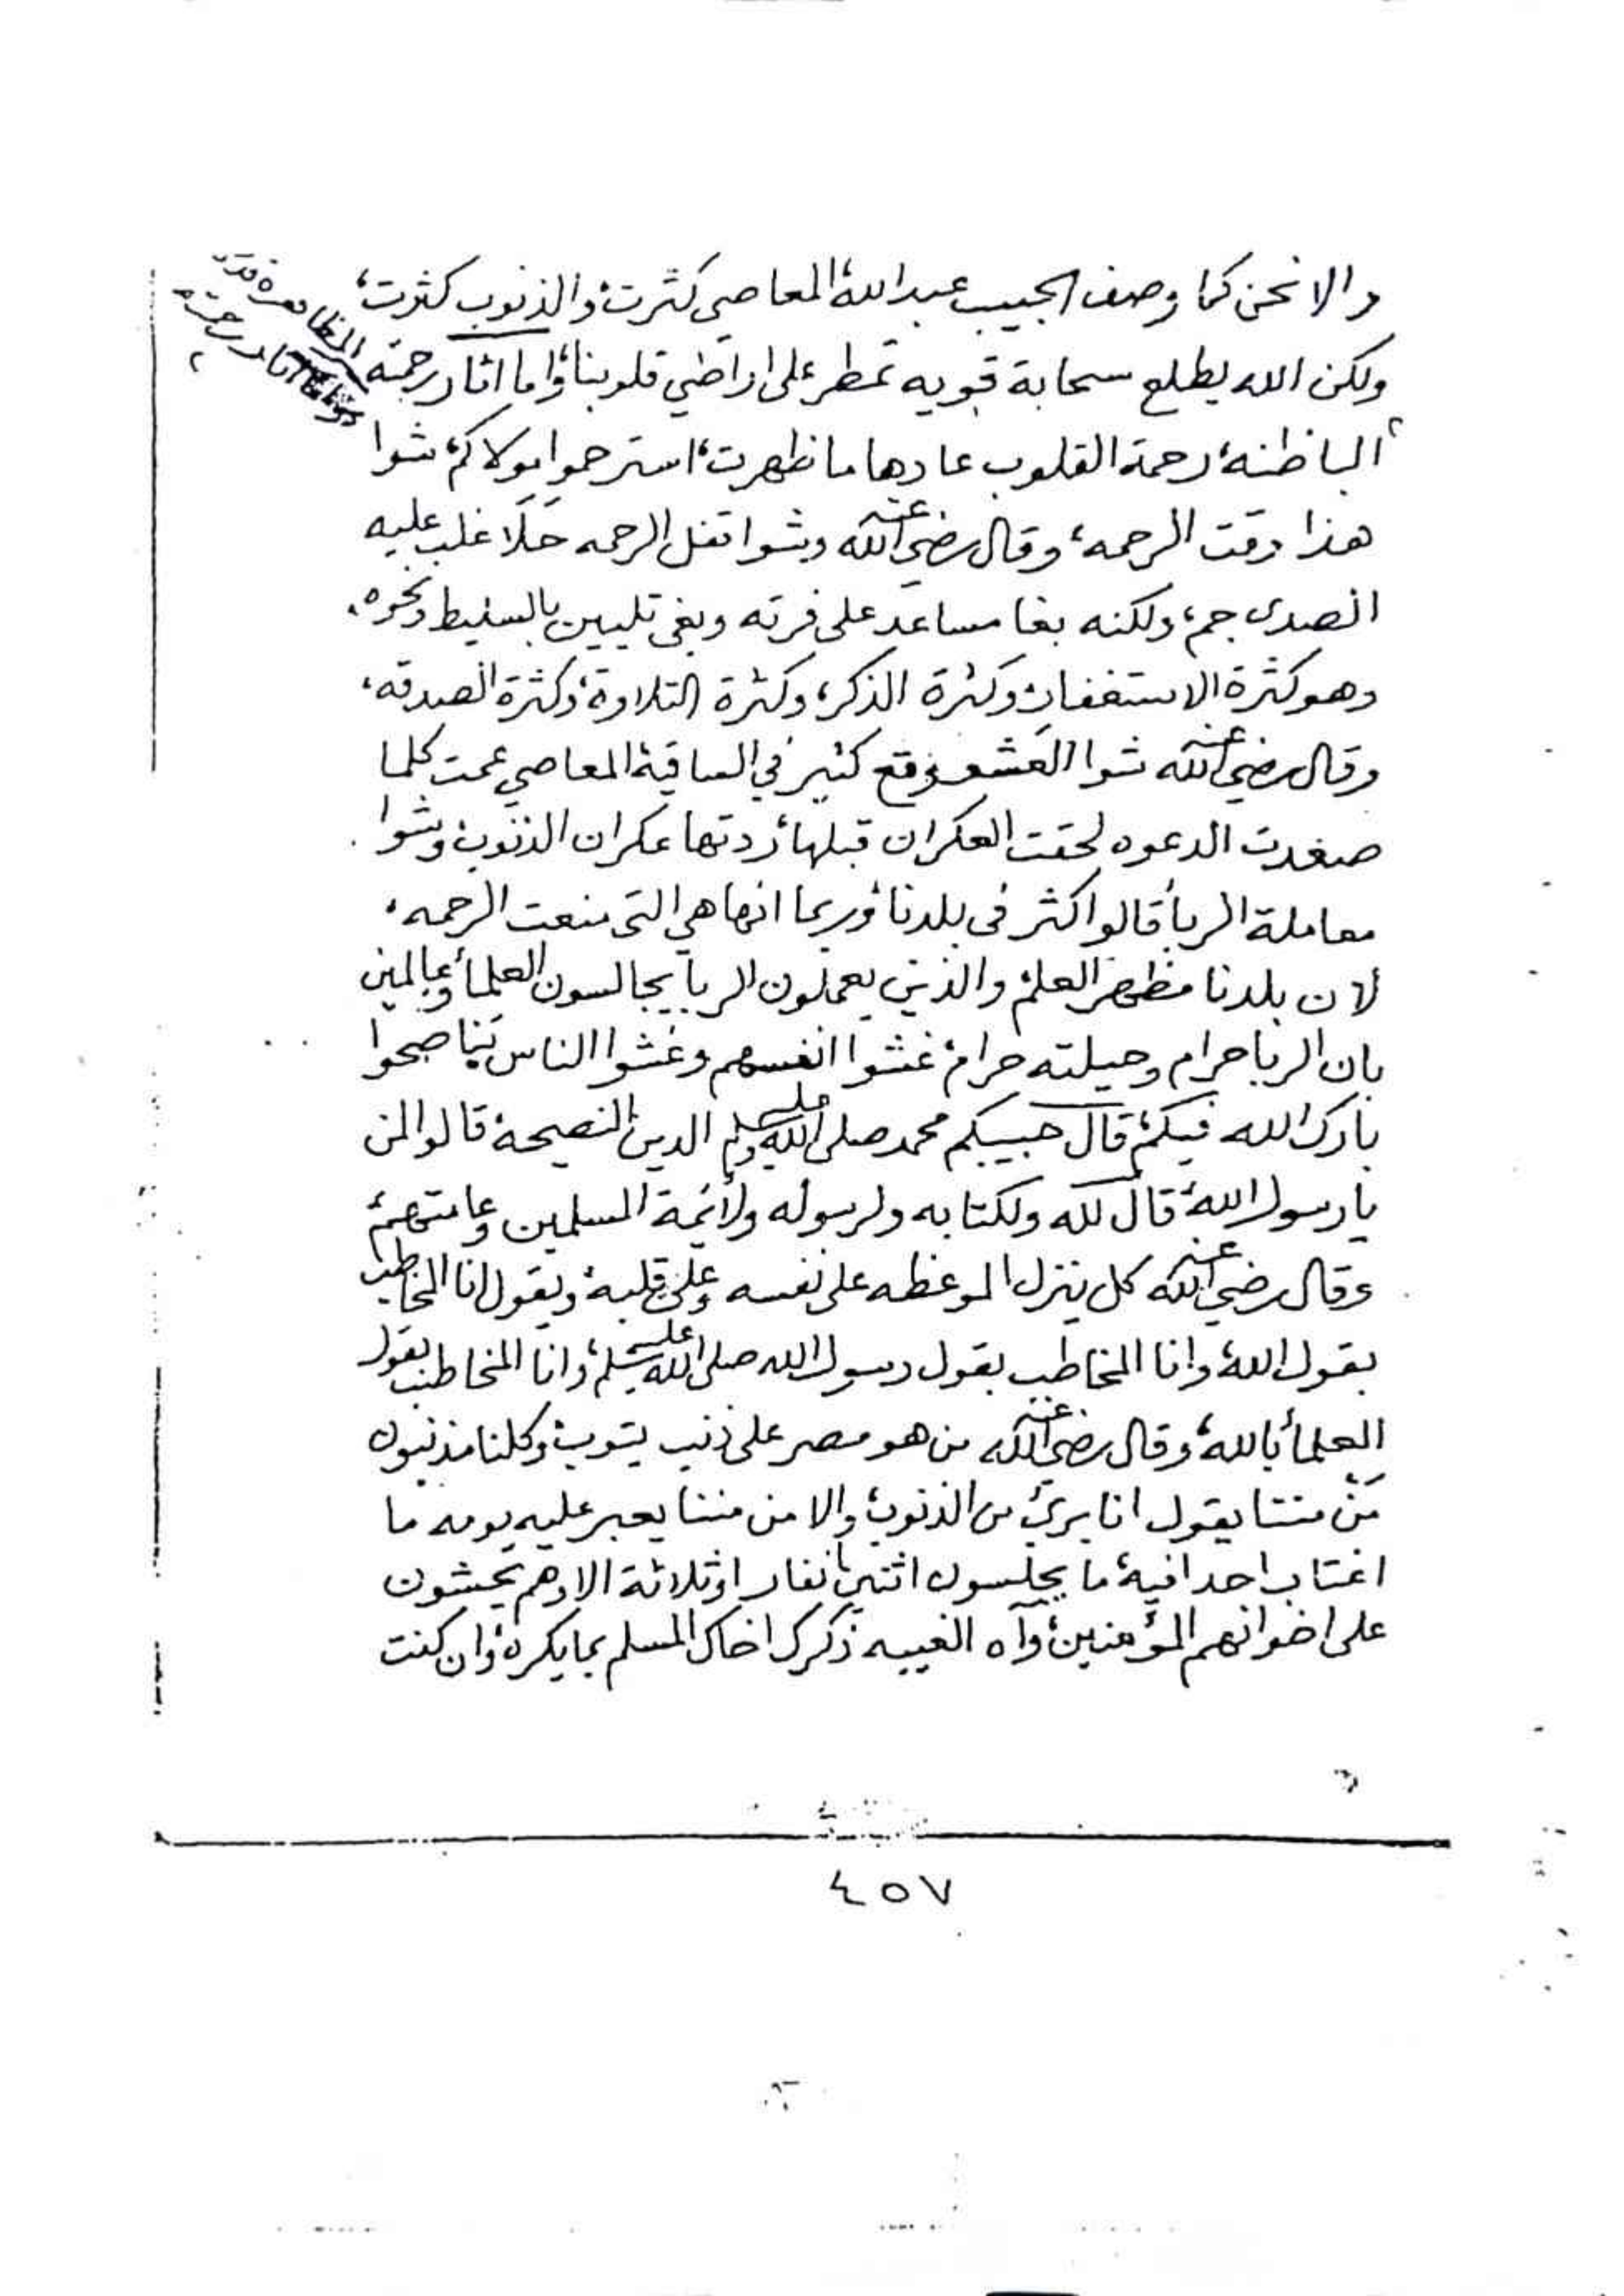 والا نحن كما وصف الحبيب عبدالله، المعاصي كثرت، والذنوب كثرت،
ولكن الله يطلع سحابة قويه تمطر على اراضي قلوبنا، واما اثار رحمته الظاهرة قد
اثار رحمته
الباطنه، رحمة القلوب عادها ما ظهرت، استرحموا مولاكم، شوا
هذا وقت الرحمه، وقال رضي الله عنه وشوا قفل الرحمه حلا غلب عليه
الصدى جم، ولكنه بغا مساعد على فرته وبغى تليين بالسليط ونحوه،
وهو كثرة الاستغفار، وكثرة الذكر، وكثرة التلاوة، وكثرة الصدقه،
وقال رضي الله عنه شوا القشع وقع كثير في الساقية، المعاصي عمت كلما
صعدت الدعوه لحقت العكران قبلها، ردتها عكران الذنوب، وشوا
معاملة الربا، قالوا كثر في بلدنا، وربما انها هي التي منعت الرحمه،
لان بلدنا مظهر العلم، والذين يعملون الربا يجالسون العلما، وعالمين
بان الربا حرام وحيلته حرام، غشوا انفسهم وغشوا الناس، تناصحوا
بارك الله فيكم، قال حبيبكم محمد صلى الله عليه وسلم الدين النصيحة، قالوا لمن
يا رسول الله، قال لله ولكتابه ولرسوله ولأئمة المسلمين وعامتهم،
وقال رضي الله عنه كل ينزل الموعظه على نفسه وعلى قلبه، ويقول انا المخاطب
بقول الله، وانا المخاطب بقول رسول الله صلى الله عليه وسلم، وانا المخاطب بقول
العلما بالله، وقال رضي الله عنه من هو مصر على ذنب يتوب، وكلنا مذنبون
مَن مننا يقول انا بريئ من الذنوب، والا من مننا يعبر عليه يومه ما
اغتاب احد افيه، ما يجلسون اثنين انفار اوثلاثة الا وهم يحشون
على اخوانهم المؤمنين، وآه الغيبه ذكرك اخاك المسلم بما يكره، وان كنت
٤٥٧